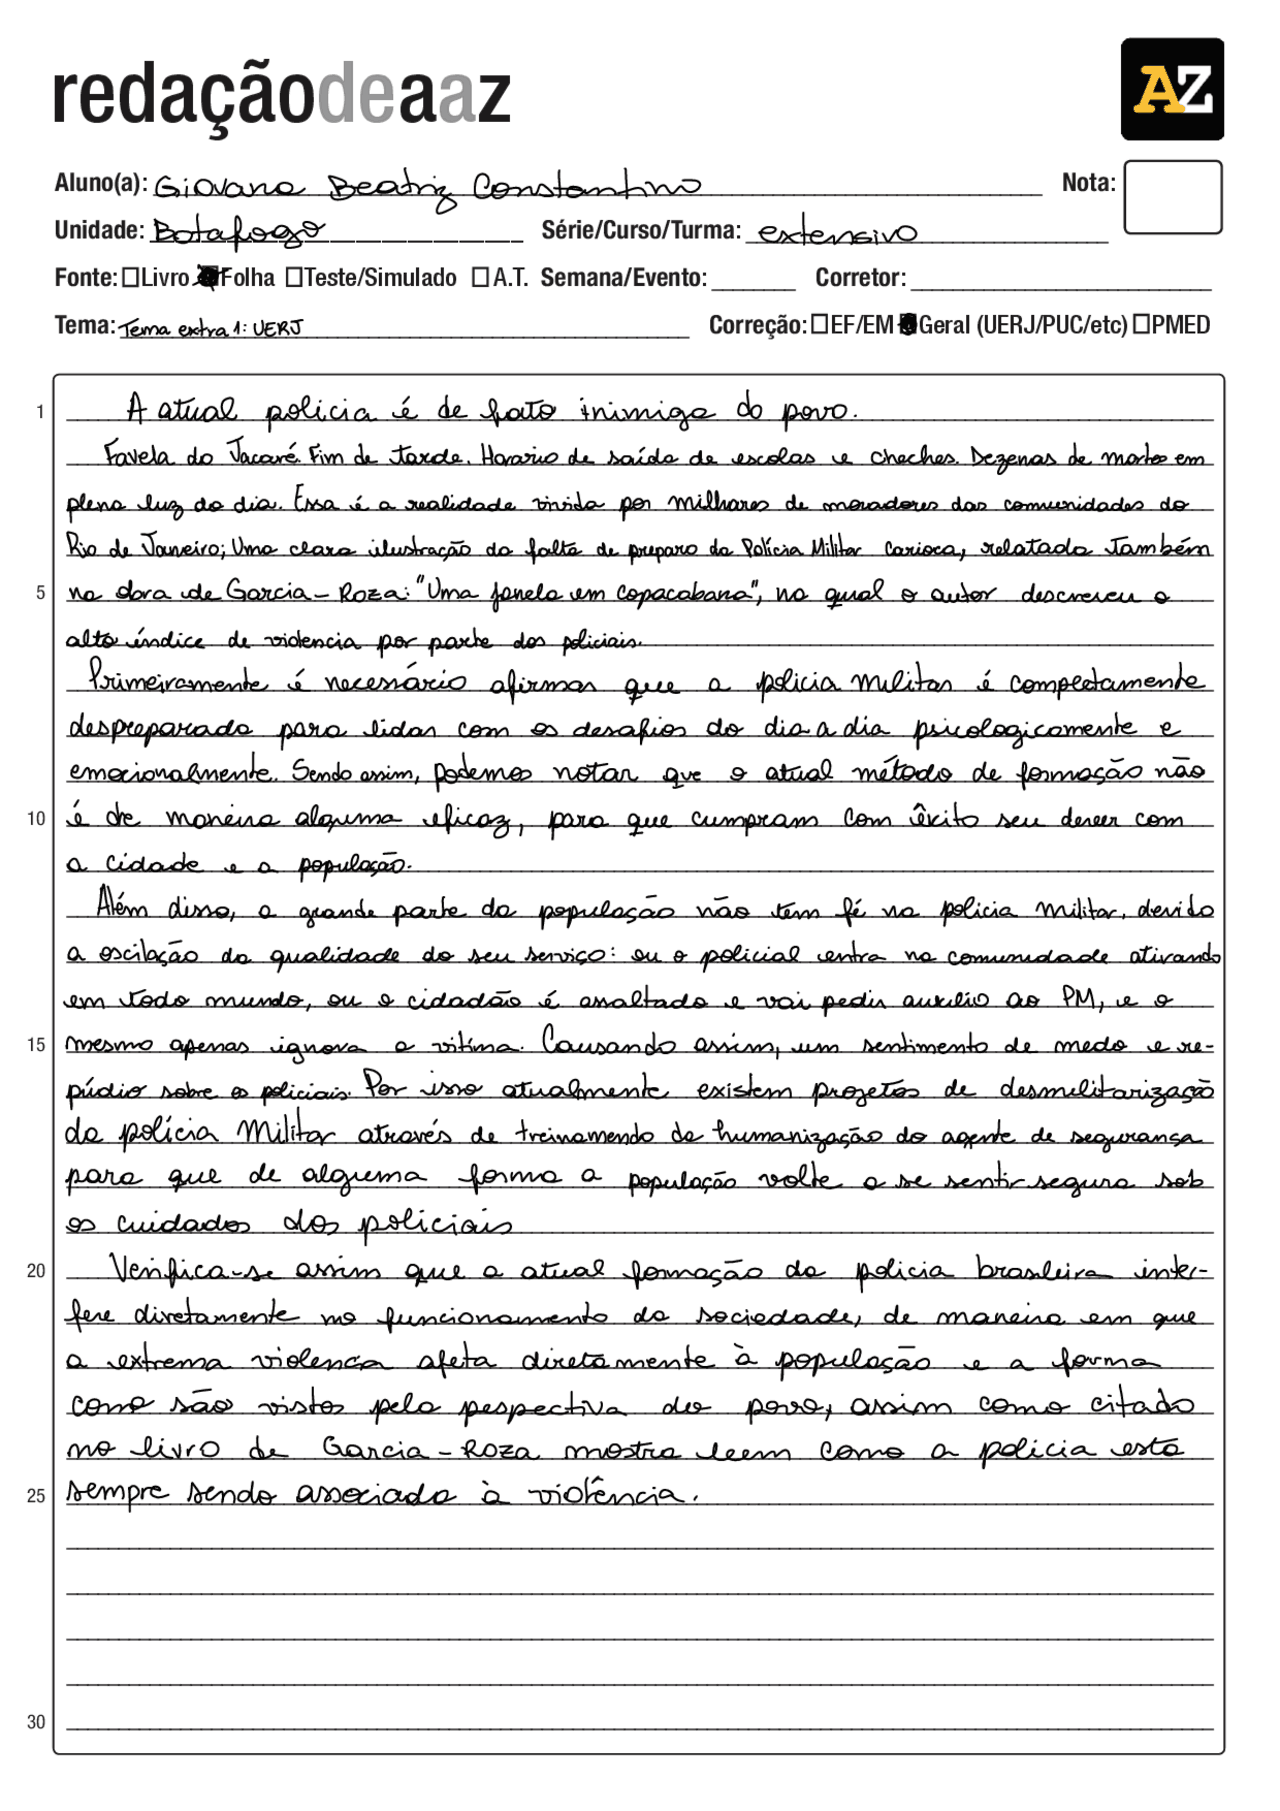 redaçãodeaaz
AZ
Aluno(a): Giovana Beatriz Constantino Nota:
Unidade: Botafogo Série/Curso/Turma: extensivo
Fonte: Livro Folha Teste/Simulado A.T. Semana/Evento: Corretor:
Tema: Tema extra 1: UERJ Correção: EF/EM Geral (UERJ/PUC/etc) PMED
1 A atual policia é de fato inimiga do povo.
Favela do Jacaré. Fim de tarde. Horario de saída de escolas e cheches. Dezenas de mortos em
plena luz do dia. Essa é a realidade vivida por milhares de moradores das comunidades do
Rio de Janeiro; Uma clara ilustração da falta de preparo da Polícia Militar carioca, relatada também
5 na obra de Garcia-Roza: "Uma janela em copacabana", na qual o autor descreveu o
alto índice de violencia por parte dos policiais.
Primeiramente é necessário afirmar que a policia militar é completamente
despreparada para lidar com os desafios do dia a dia psicologicamente e
emocionalmente. Sendo assim, podemos notar que o atual método de formação não
10 é de maneira alguma eficaz, para que cumpram com êxito seu dever com
a cidade e a população.
Além disso, a grande parte da população não tem fé na policia militar, devido
a oscilação da qualidade do seu serviço: ou o policial entra na comunidade atirando
em todo mundo, ou o cidadão é assaltado e vai pedir auxilio ao PM, e o
15 mesmo apenas ignora a vitima. Causando assim, um sentimento de medo e re-
púdio sobre os policiais. Por isso atualmente existem projetos de desmilitarização
da polícia Militar através de treinamendo de humanização do agente de segurança
para que de alguma forma a população volte a se sentir segura sob
os cuidados dos policiais
20 Verifica-se assim que a atual formação da policia brasileira inter-
fere diretamente no funcionamento da sociedade, de maneira em que
a extrema violencia afeta diretamente à população e a forma
como são vistos pela pespectiva do povo, assim como citado
no livro de Garcia-Roza mostra bem como a policia está
25 sempre sendo associada à violência.
30